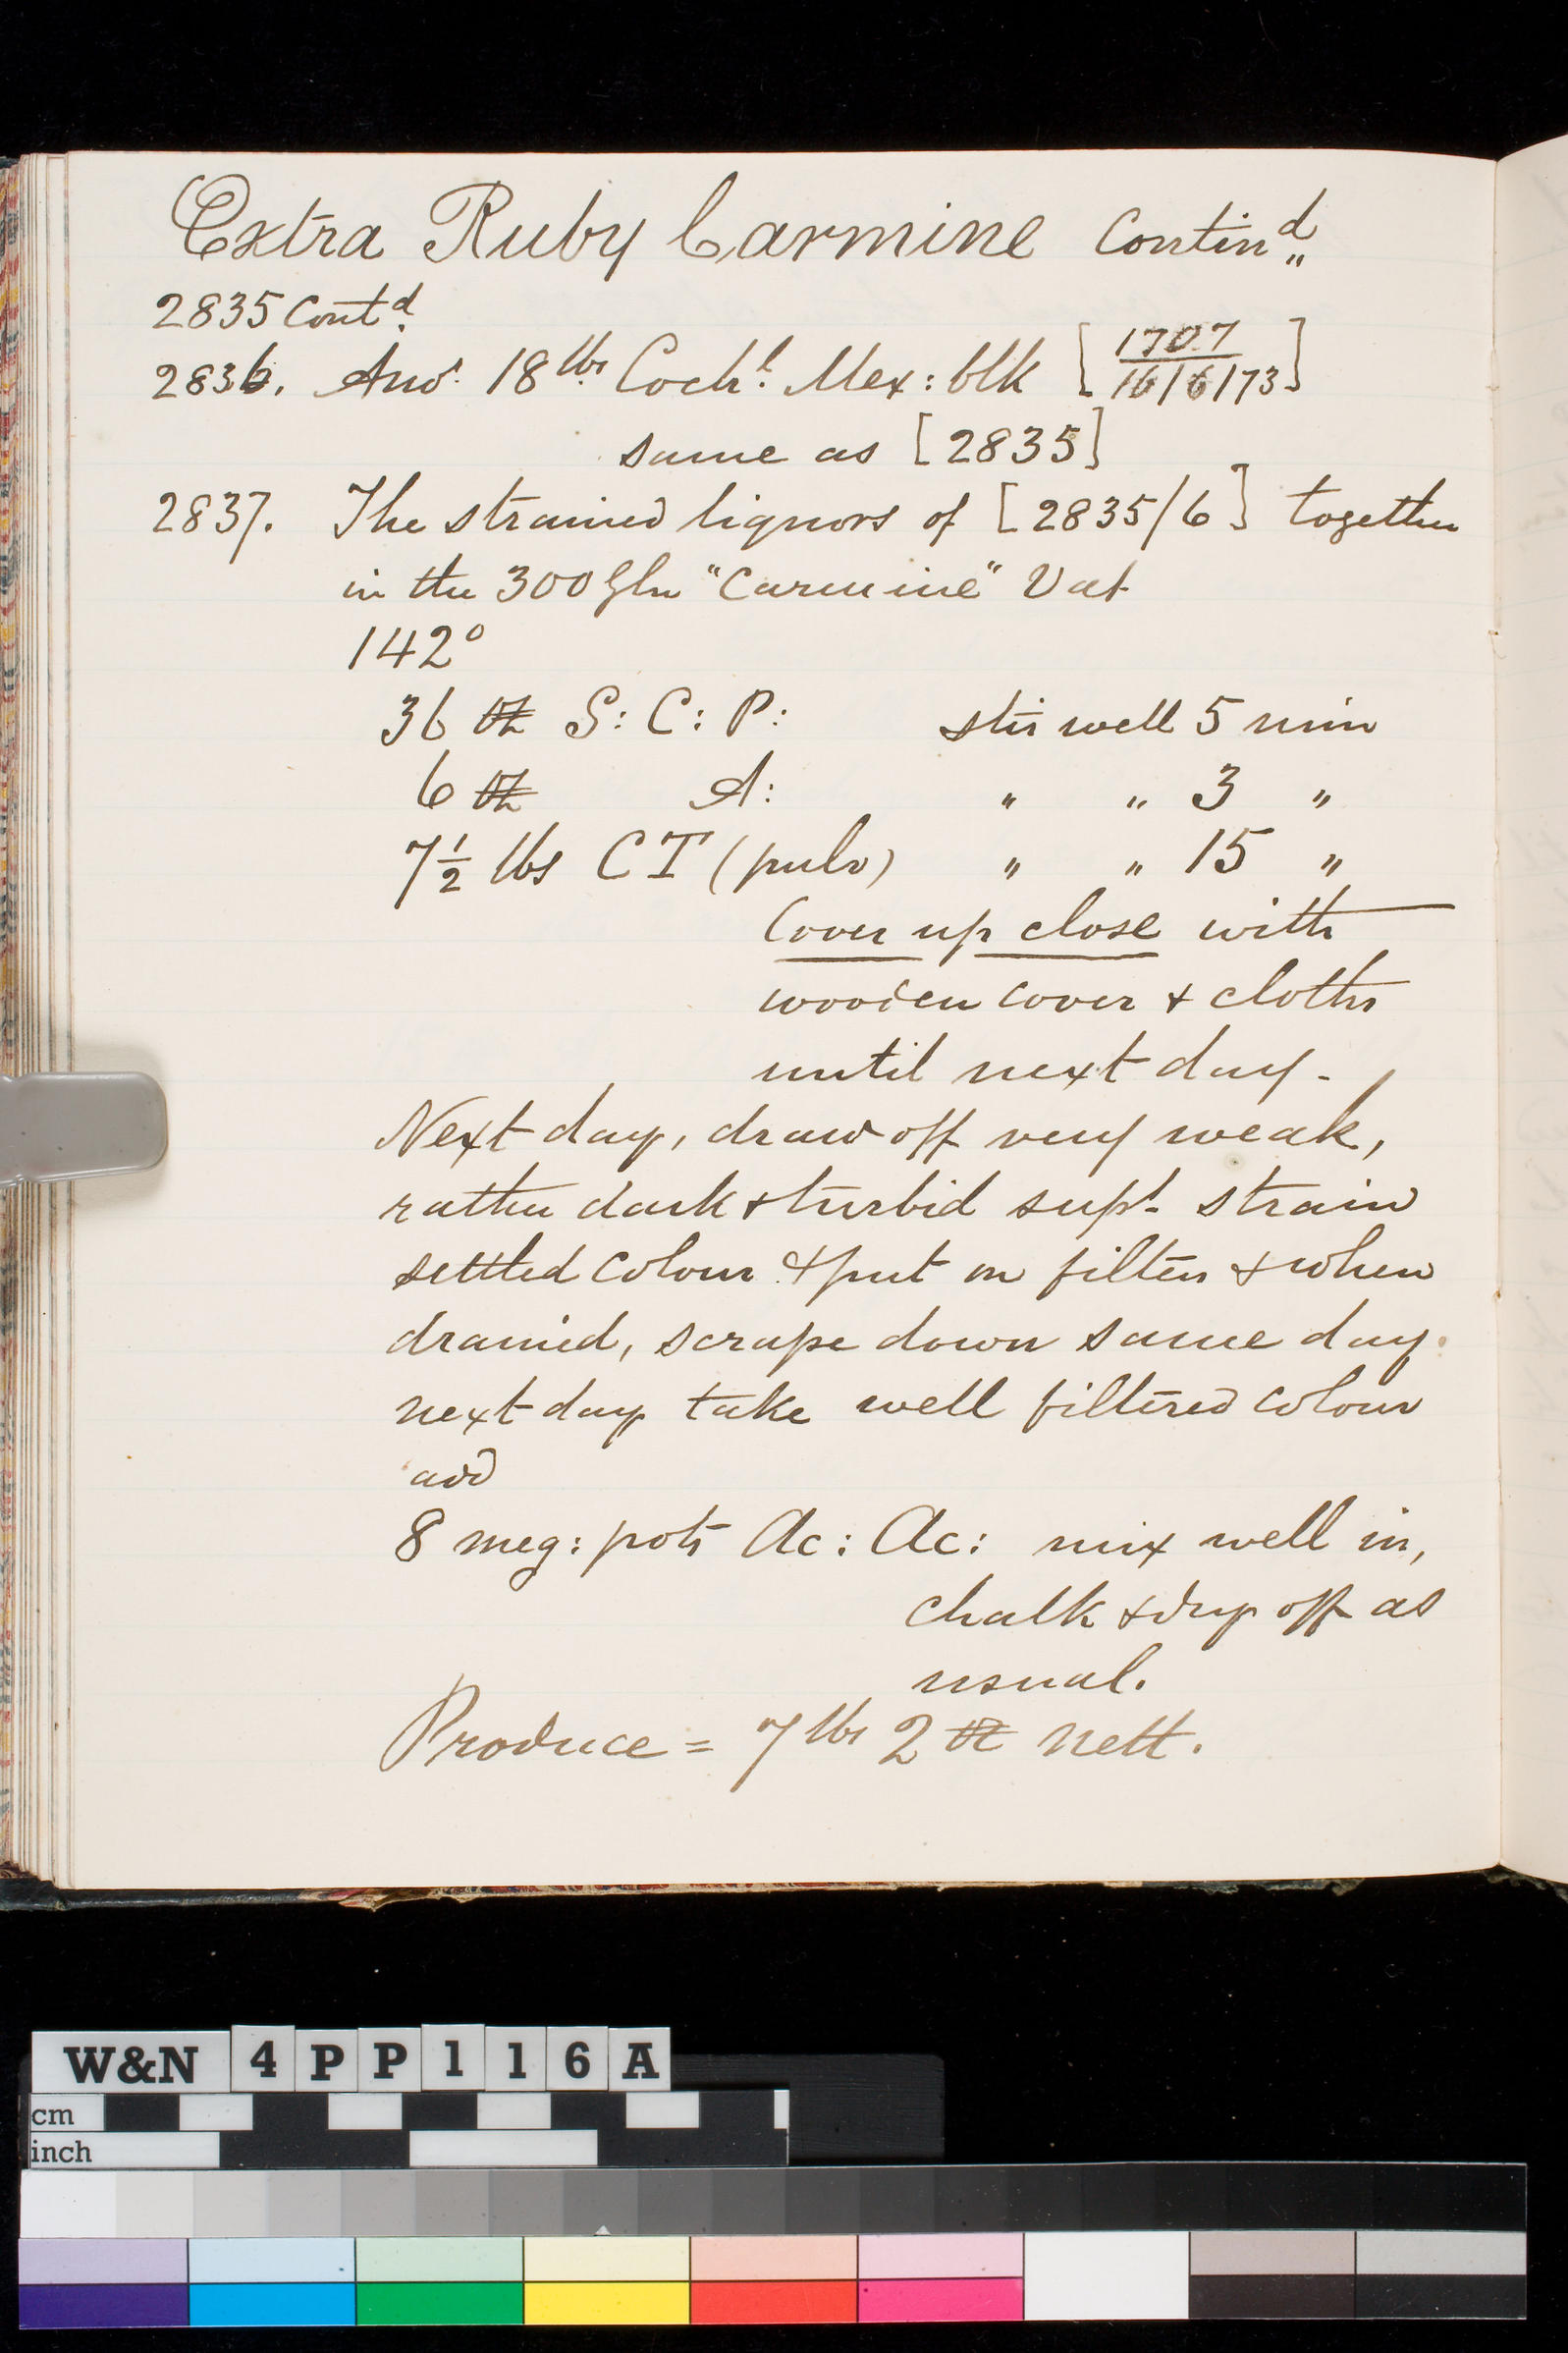 Extra Ruby Carmine Contin^d
2835 Cont^d.
2836. And 18 lbs Coch^l. Mex: blk [1707 / 16/6/73]
same as [2835]
2837. The strained liquors of [2835/6] together
in the 300 Gln "Carmine" Vat
142°
36 oz S: C: P: stir well 5 min
6 oz A: " " 3 "
7½ lbs CT (pulv) " " 15 "
Cover up close with
wooden cover & cloths
until next day -
Next day, draw off very weak,
rather dark & turbid supt. strain
settled colour & put on filters & when
drained, scrape down same day.
next day take well filtered colour
add
8 meg: pots Ac: Ac: mix well in,
chalk & dry off as
usual.
Produce = 7 lbs 2 oz nett.
W&N 4PP116A
cm
inch